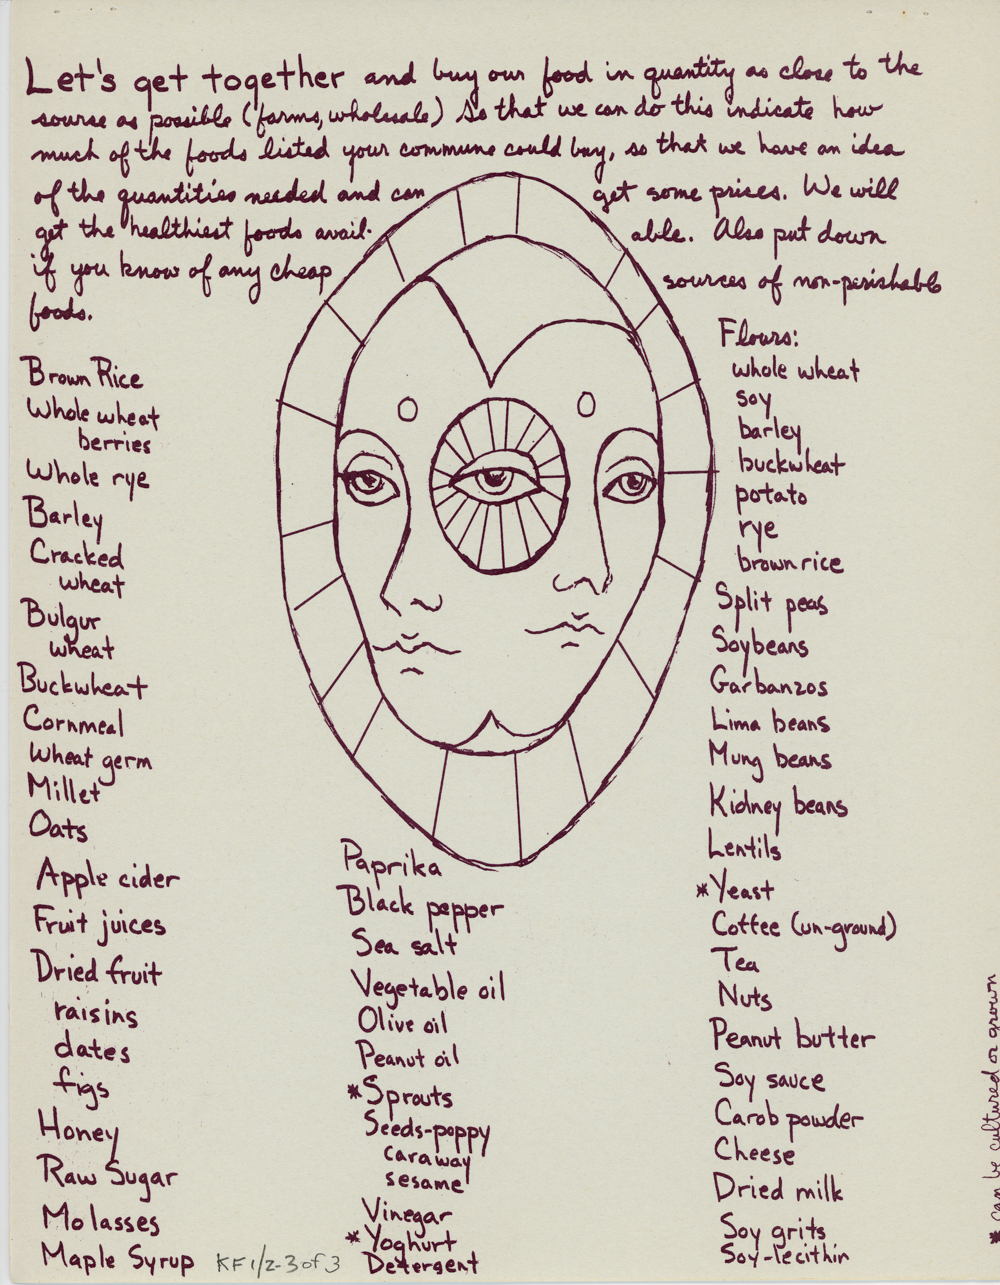 Let's get together and buy our food in quantity as close to the
sourse as possible (farms, wholesale) So that we can do this indicate how
much of the foods listed your commune could buy, so that we have an idea
of the quantities needed and can get some prices. We will
get the healthiest foods avail- able. Also put down
if you know of any cheap sources of non-perishable
foods.
Brown Rice
Whole wheat
berries
Whole rye
Barley
Cracked
wheat
Bulgur
wheat
Buckwheat
Cornmeal
Wheat germ
Millet
Oats
Apple cider
Fruit juices
Dried fruit
raisins
dates
figs
Honey
Raw Sugar
Molasses
Maple Syrup
KF1/2-3 of 3
Paprika
Black pepper
Sea salt
Vegetable oil
Olive oil
Peanut oil
*Sprouts
Seeds-poppy
caraway
sesame
Vinegar
*Yoghurt
Detergent
Flours:
whole wheat
soy
barley
buckwheat
potato
rye
brown rice
Split peas
Soybeans
Garbanzos
Lima beans
Mung beans
Kidney beans
Lentils
*Yeast
Coffee (un-ground)
Tea
Nuts
Peanut butter
Soy sauce
Carob powder
Cheese
Dried milk
Soy grits
Soy-lecithin
* can be cultured or grown